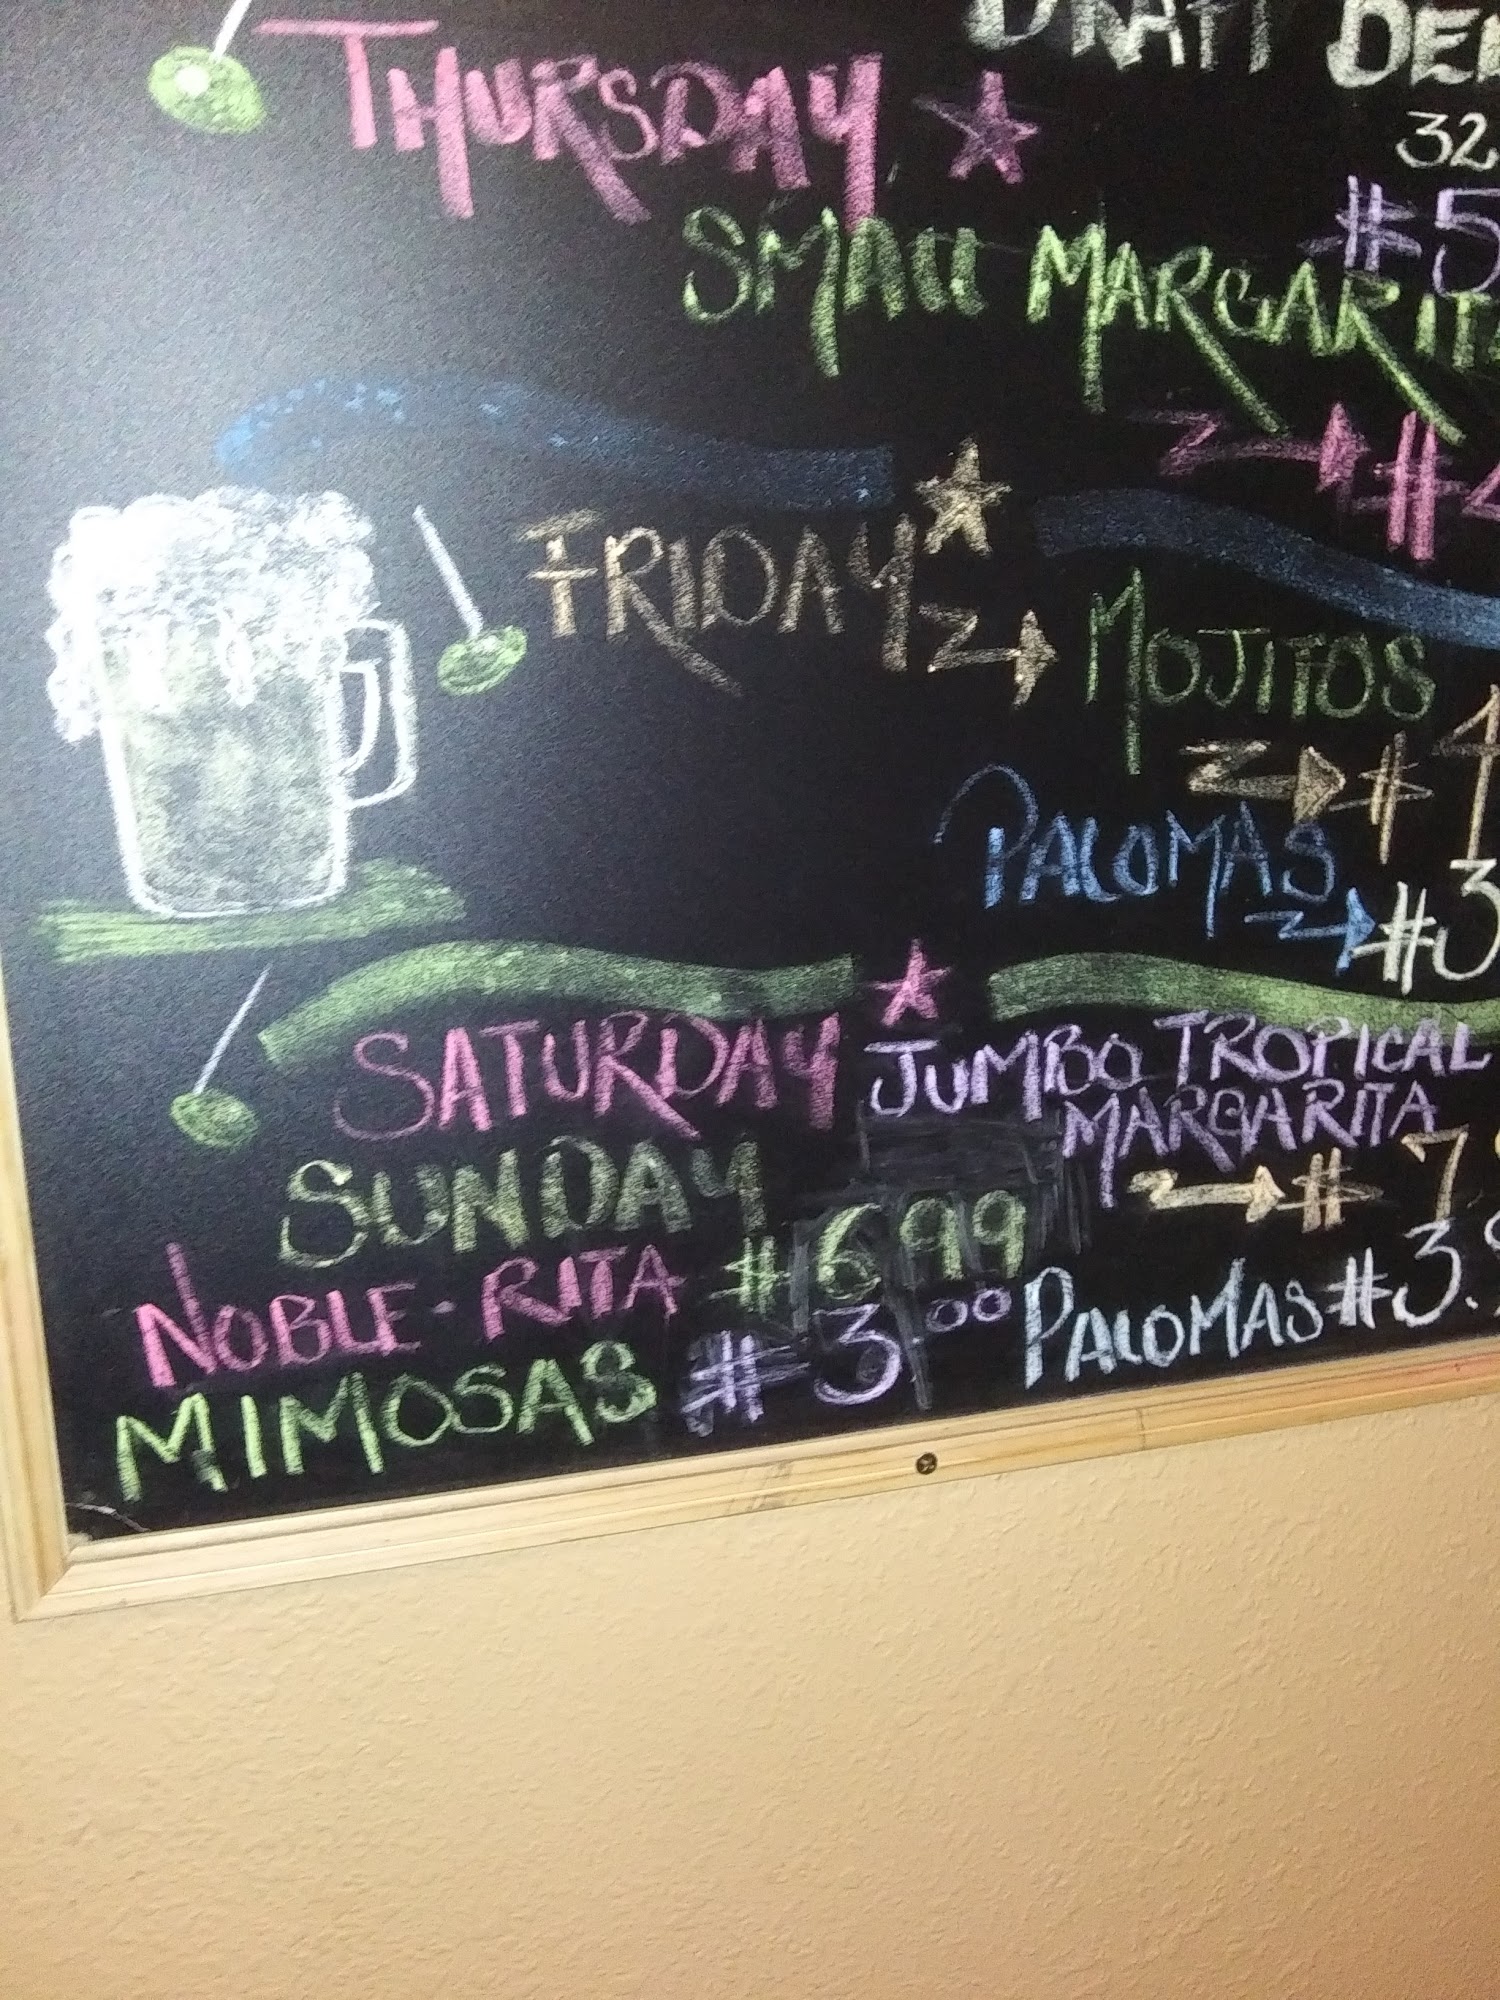 DRAFT
32
THURSDAY
#5
SMALL MARGARITA
#4
FRIDAY MOJITOS
#4
PALOMAS
#3
SATURDAY JUMBO TROPICAL
MARGARITA
#7
SUNDAY
NOBLE-RITA #6.99
MIMOSAS #3.00 PALOMAS #3.